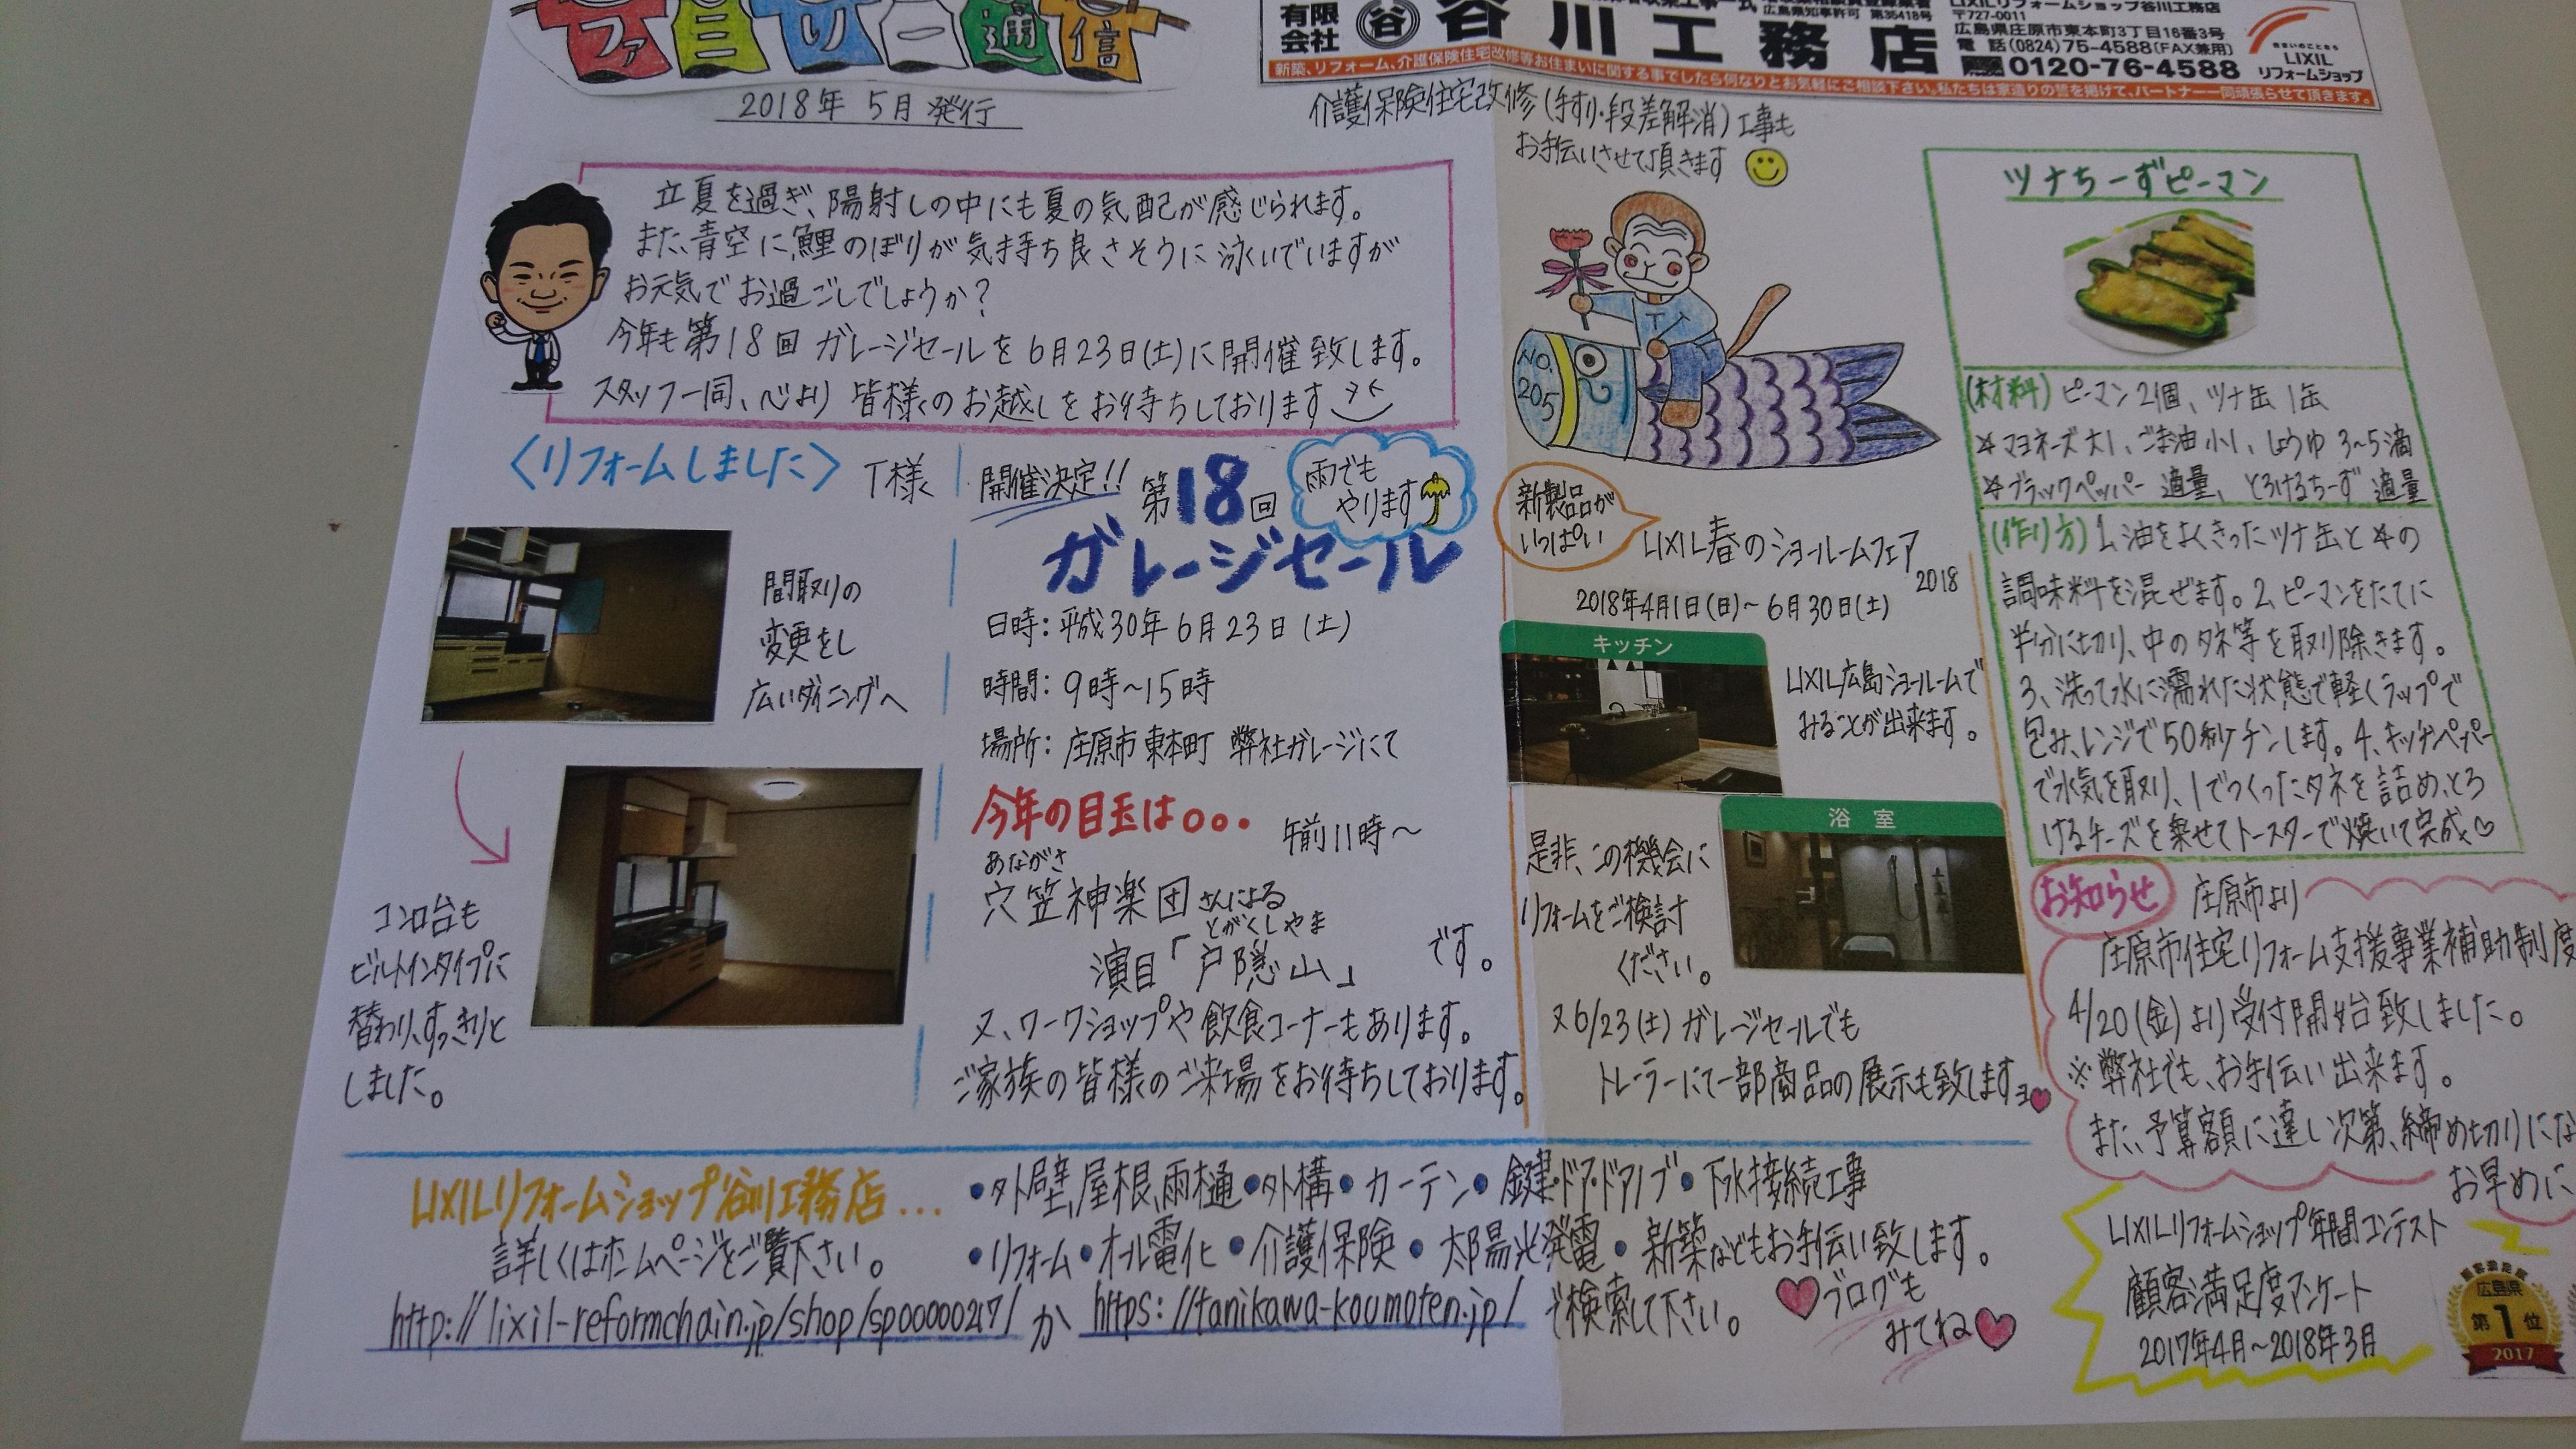 ファミリー通信
2018年 5月 発行
有限会社 谷 谷川工務店
広島県知事許可 第35418号
LIXILリフォームショップ谷川工務店
〒727-0011
広島県庄原市東本町3丁目16番3号
電 話(0824)75-4588(FAX兼用)
0120-76-4588
LIXIL
リフォームショップ
新築、リフォーム、介護保険住宅改修等お住まいに関する事でしたら何なりとお気軽にご相談下さい。私たちは家造りの誓を掲げて、パートナー一同頑張らせて頂きます。
介護保険住宅改修(手すり・段差解消)工事も
お手伝いさせて頂きます
立夏を過ぎ、陽射しの中にも夏の気配が感じられます。
また、青空に鯉のぼりが気持ち良さそうに泳いでいますが
お元気でお過ごしでしょうか?
今年も第18回ガレージセールを6月23日(土)に開催致します。
スタッフ一同、心より皆様のお越しをお待ちしております
〈リフォームしました〉 T様
間取りの
変更をし
広いダイニングへ
コンロ台も
ビルトインタイプに
替わり、すっきりと
しました。
開催決定!! 第18回
雨でも
やります
ガレージセール
日時:平成30年6月23日(土)
時間:9時~15時
場所:庄原市東本町 弊社ガレージにて
今年の目玉は。。。 午前11時~
あながさ
穴笠神楽団さんによる
とがくしやま
演目「戸隠山」 です。
又、ワークショップや飲食コーナーもあります。
ご家族の皆様のご来場をお待ちしております。
NO.
205
新製品が
いっぱい
LIXIL春のショールームフェア
2018
2018年4月1日(日)~6月30日(土)
キッチン
LIXIL広島ショールームで
みることが出来ます。
浴室
是非、この機会に
リフォームをご検討
ください。
又6/23(土)ガレージセールでも
トレーラーにて一部商品の展示も致しますョ
ツナちーずピーマン
(材料) ピーマン2個、ツナ缶1缶
☆マヨネーズ大1、ごま油小1、しょうゆ3~5滴
☆ブラックペッパー適量、とろけるちーず適量
(作り方) 1、油をよくきったツナ缶と☆の
調味料を混ぜます。2、ピーマンをたてに
半分に切り、中のタネ等を取り除きます。
3、洗って水に濡れた状態で軽くラップで
包み、レンジで50秒チンします。4、キッチンペーパー
で水気を取り、1でつくったタネを詰め、とろ
けるチーズを乗せてトースターで焼いて完成♡
お知らせ 庄原市より
庄原市住宅リフォーム支援事業補助制度
4/20(金)より受付開始致しました。
※弊社でも、お手伝い出来ます。
また、予算額に達し次第、締め切りにな
お早めに
LIXILリフォームショップ谷川工務店...
詳しくはホームページをご覧下さい。
●外壁,屋根,雨樋●外構●カーテン●鍵・ドア・ドアノブ●下水接続工事
●リフォーム●オール電化●介護保険●太陽光発電●新築などもお手伝い致します。
http://lixil-reformchain.jp/shop/sp00000217/ か https://tanikawa-koumuten.jp/ で検索して下さい。
ブログも
みてね
LIXILリフォームショップ年間コンテスト
顧客満足度アンケート
2017年4月~2018年3月
広島県
第1位
2017